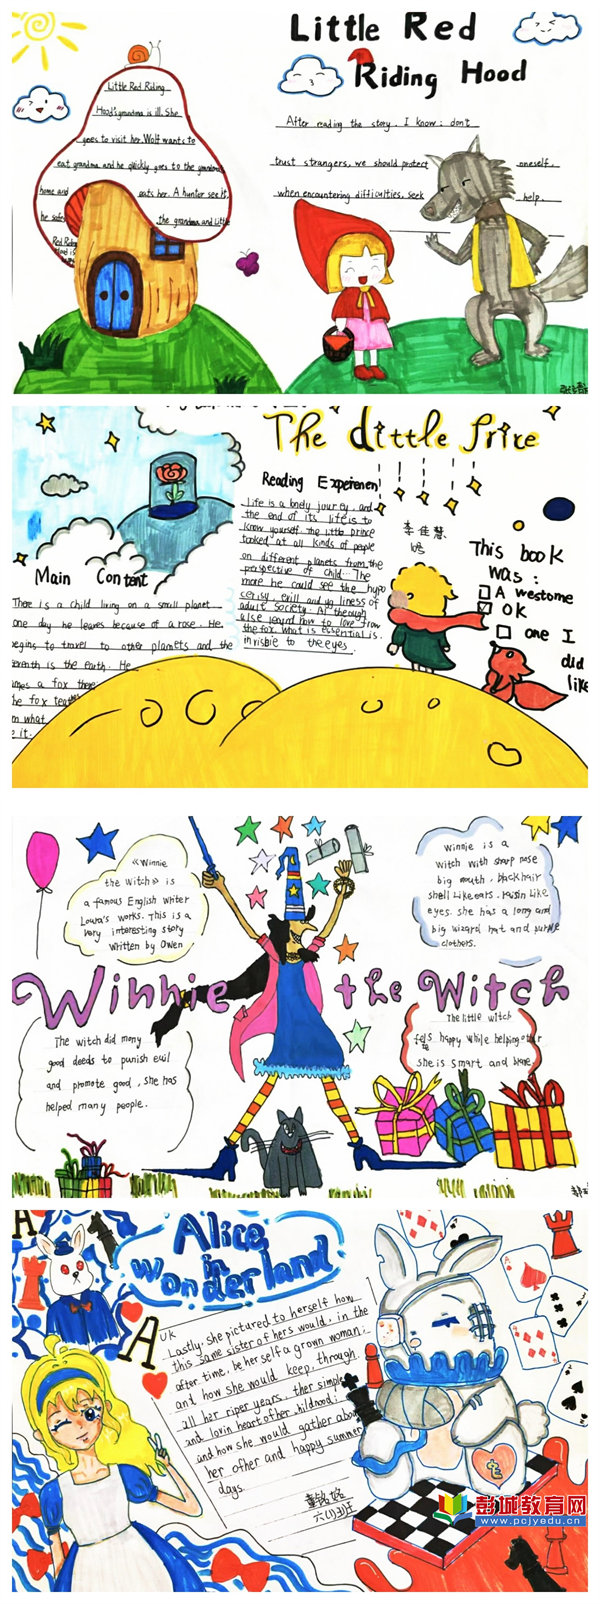 Little Red
Riding Hood
Little Red Riding
Hood's grandma is ill. She
goes to visit her. Wolf wants to
eat grandma and he quickly goes to the grandma
home and eats her. A hunter see it,
he safes the grandma and Little
Red Riding
Hood is
After reading the story, I know: don't
trust strangers, we should protect oneself,
when encountering difficulties, seek help.
The dittle frice
Reading Experienen
Life is a lonely jour ey, and
the end of its life is to
know yourself. The little prince
looked at all kinds of people
on different planets from the
perspective of child... The
more he could see the hypo
cerisy, evill and ugliness of
adult society. At through
alse leanrd how to love from
the fox. what is essential is.
in visible to the eyes.
李佳慧
This book
was:
A westome
OK
one I
did
like
Main Content
There is a child living on a small planet
one day he leaves because of a rose. He
egins to travel to other planets and the
seventh is the earth. He
mes a fox there
he fox tea
m what
e it.
《Winnie
the Witch》 is
a famous English writer
Loura's works. This is a
very interesting story
written by Owen
Winnie is a
witch with sharp nose
big mouth, black hair
shell like ears, raisin like
eyes. she has a long and
big wizard hat and purple
clothers.
Winnie the Witch
The witch did many
good deeds to punish evil
and promote good, she has
helped many people.
The little witch
fels happy while helping other
she is smart and brave
Alice
in
wonderland
A
A
UK
Lastly, she pictured to herself how
this same sister of hers would, in the
after time, be herself a grown woman;
and how she would keep, through
all her riper years, ther simple
and lovin heart of her childhood;
and how she would gather about
her other and happy summer
days.
董铭培
六(1)班
彭城教育网
www.pcjyedu.cn